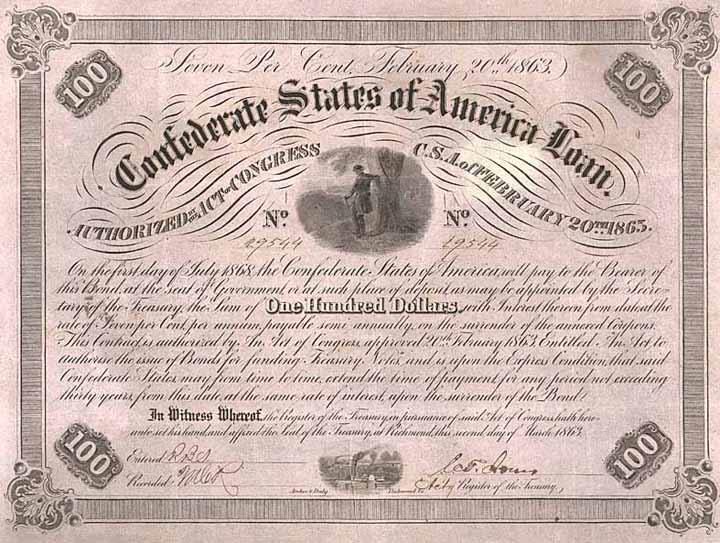 100
Seven Per Cent, February 20th 1863.
100
Confederate States of America Loan.
AUTHORIZED BY THE ACT OF CONGRESS C.S.A. of FEBRUARY 20TH 1863.
No No
29544 29544
On the first day of July 1868, the Confederate States of America, will pay to the Bearer of
this Bond, at the seat of Government, or at such place of deposit, as may be appointed by the Secre-
tary of the Treasury, the Sum of One Hundred Dollars, with Interest thereon from date, at the
rate of Seven per Cent, per annum, payable semi-annually, on the surrender of the annexed Coupons.
This Contract is authorized by An Act of Congress, approved 20th February 1863, Entitled An Act to
authorise the issue of Bonds for funding Treasury Notes, and is upon the Express Condition, that said
Confederate States may from time to time, extend the time of payment, for any period not exceeding
thirty years, from this date, at the same rate of interest, upon the surrender of the Bond.
In Witness Whereof, the Register of the Treasury, in pursuance of said Act of Congress, hath here-
unto set his hand, and affixed the Seal of the Treasury, at Richmond, this second day of March 1863.
100
Entered
Recorded
Archer & Daly Richmond Va.
C. T. Jones
Actg Register of the Treasury,
100